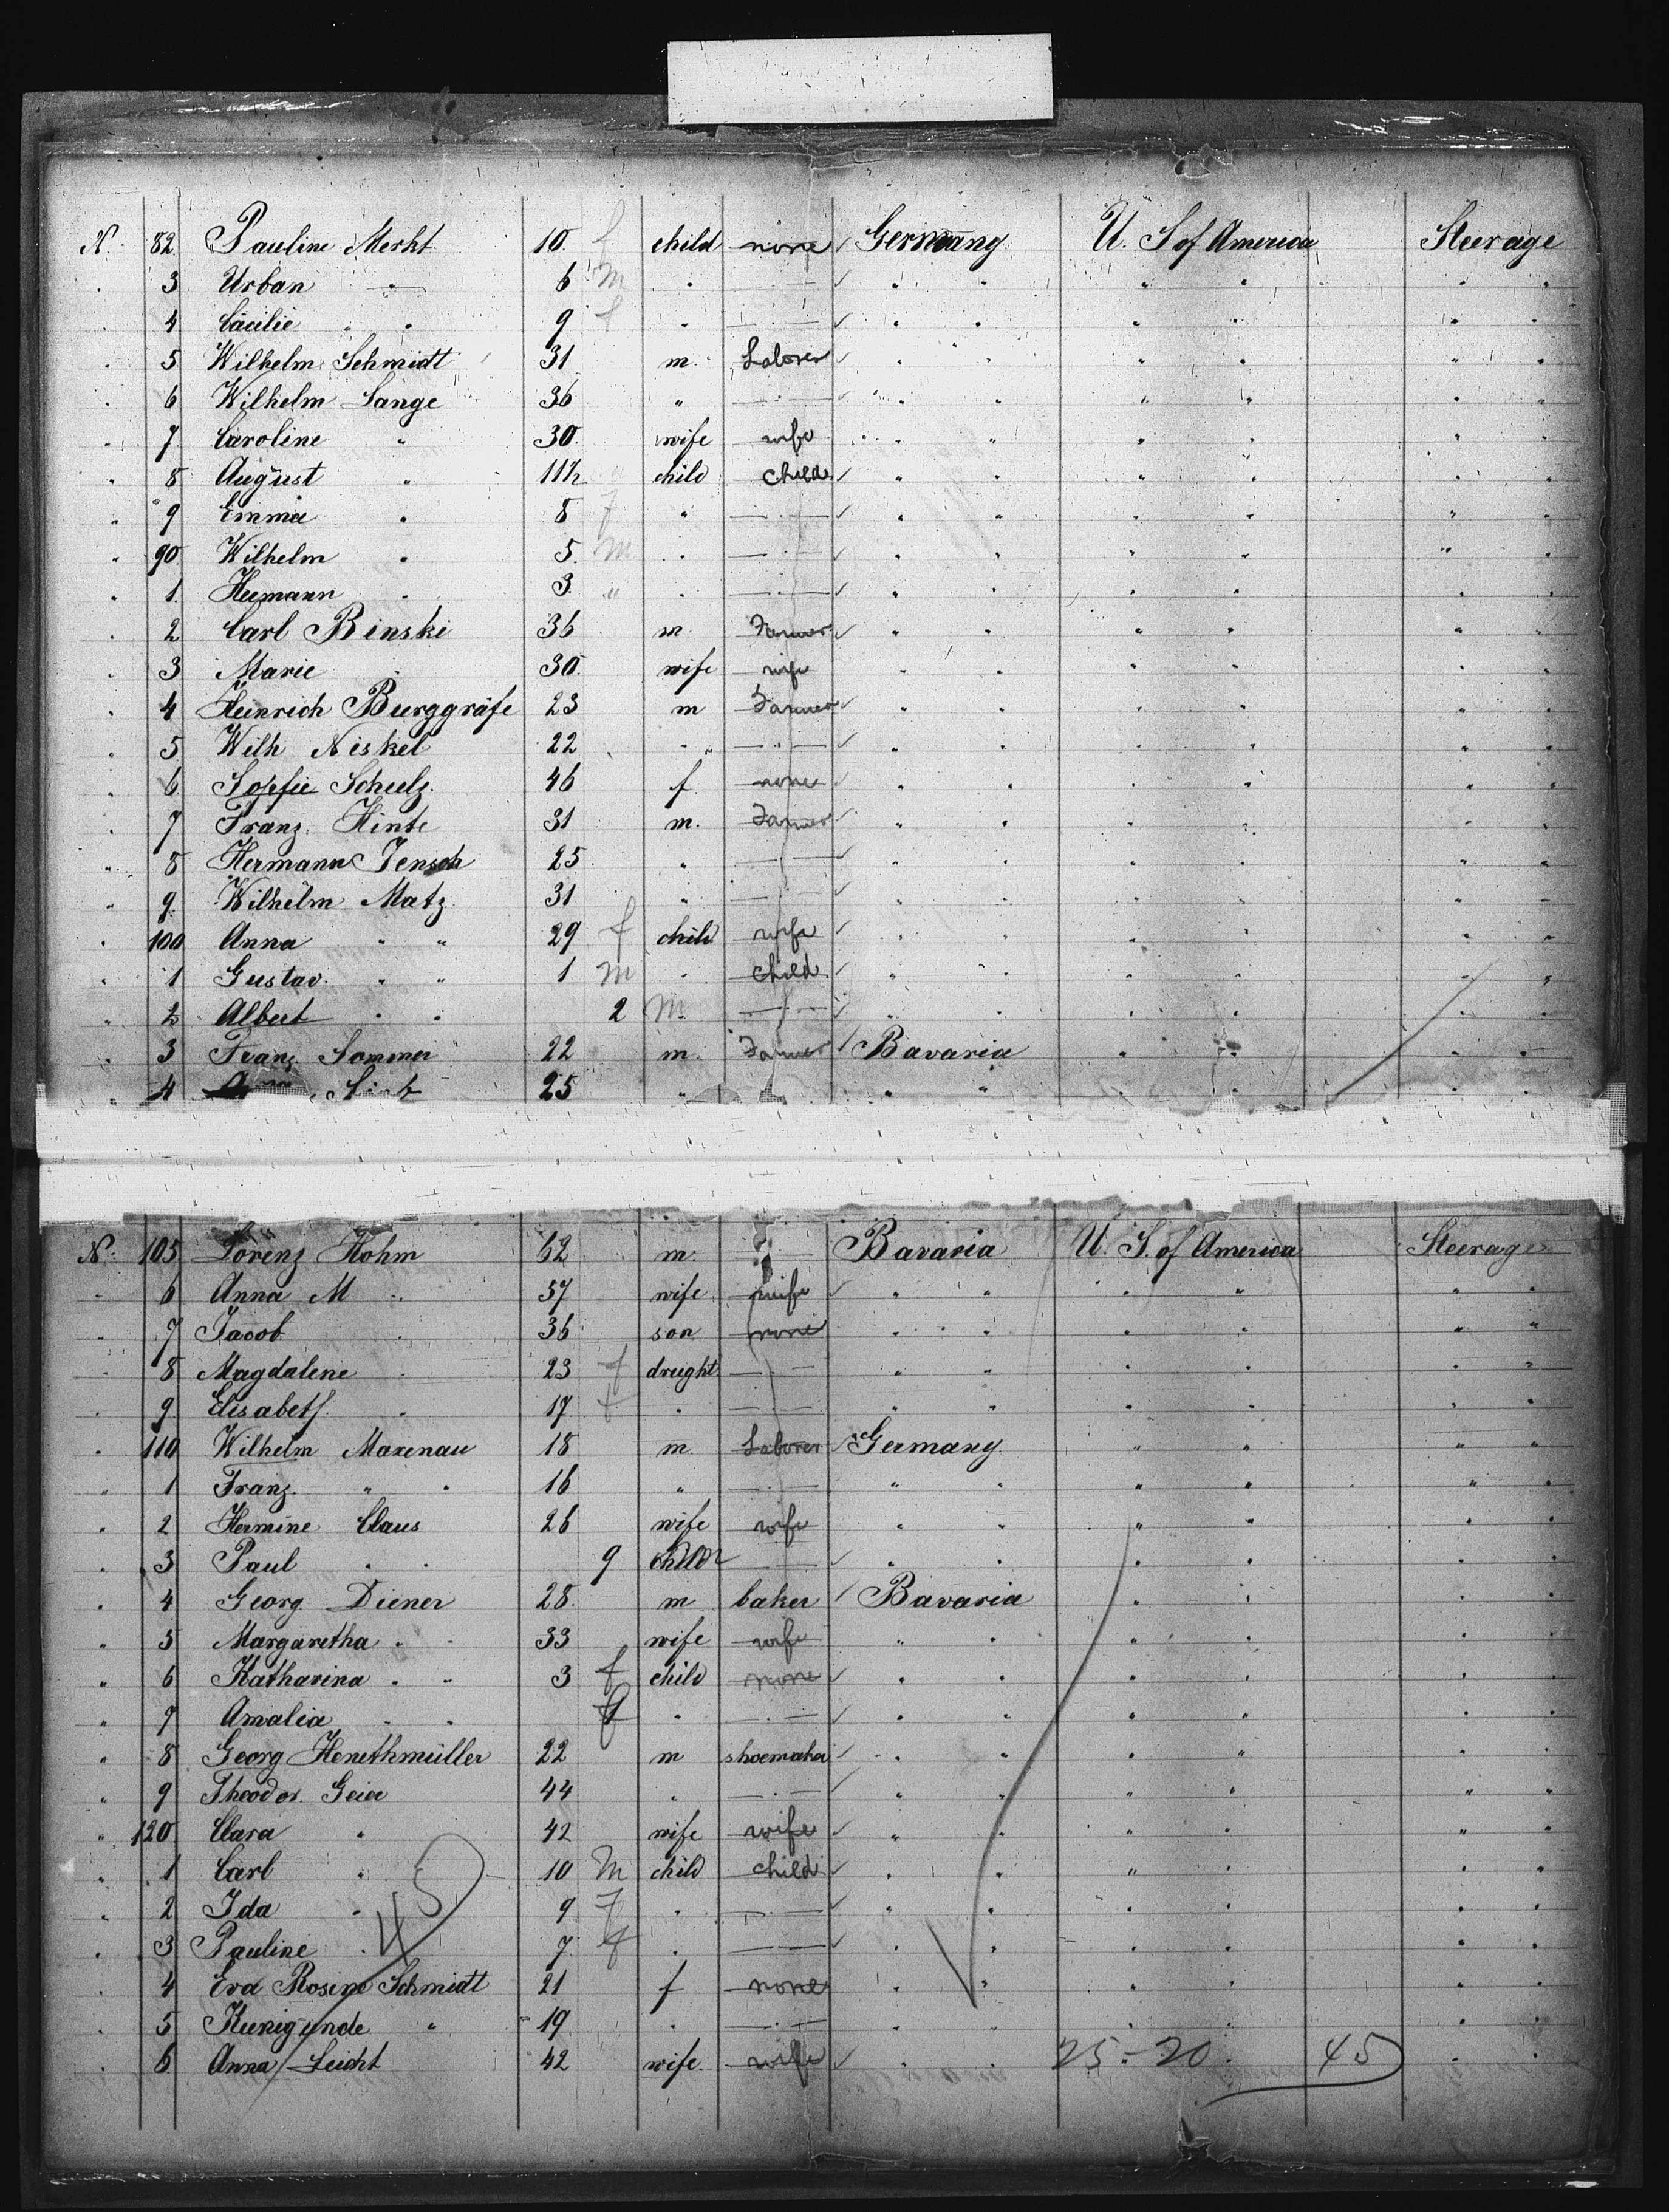 N. 82 Pauline Merkt 10. f child none ✓ Germany U. S of America Steerage
" 3 Urban " 6 M " — " — ✓ " " " " " "
" 4 Cäcilie " " 9 f " — " — ✓ " " " " " "
" 5 Wilhelm Schmidt 31 m. Laborer ✓ " " " " " "
" 6 Wilhelm Lange 36 " — " — ✓ " " " " " "
" 7 Caroline " 30. wife wife " " " " " "
" 8 August " 11½ child child ✓ " " " " " "
" 9 Emma " 8 f " — " — ✓ " " " " " "
" 90 Wilhelm " 5. M " — " — ✓ " " " " " "
" 1. Hermann " 3. " " — " — ✓ " " " " " "
" 2 Carl Binski 36 m. Farmer ✓ " " " " " "
" 3 Marie " 30. wife wife " " " " " "
" 4 Heinrich Burggräfe 23 m Farmer ✓ " " " " " "
" 5 Wilh Niskel 22 " — " — ✓ " " " " " "
" 6 Sopfie Schulz. 46 f. none ✓ " " " " " "
" 7 Franz Hinte 31 m. Farmer ✓ " " " " " "
" 8 Hermann Jensch 25 " — " — ✓ " " " " " "
" 9. Wilhelm Matz 31 " — " — ✓ " " " " " "
" 100 Anna " " 29 f child wife ✓ " " " " " "
" 1 Gustav. " " 1 M " child ✓ " " " " " "
" 2 Albert " " 2 M — " — ✓ " " " " " "
" 3 Franz Sommer 22 m. Farmer ✓ Bavaria " " " "
" 4 25 " " " " " " "
N. 105 Lorenz Hohm 62 m. Bavaria U. S. of America Steerage
" 6 Anna M " 57 wife wife ✓ " " " " " "
" 7 Jacob " 36 son none " " " " " "
" 8 Magdalene " 23 f drught. — " — " " " " " "
" 9 Elisabeth " 17 f " — " — " " " " " "
" 110 Wilhelm Maxenau 18 m. Laborer ✓ Germany " " " "
" 1 Franz. " " 16 " — " — " " " " " "
" 2 Hermine Claus 26 wife wife " " " " " "
" 3 Paul " " 9 child — ✓ " " " " " "
" 4 Georg Diener 28. m baker ✓ Bavaria " " " "
" 5 Margaretha " " 33 wife wife " " " " " "
" 6 Katharina " " 3 f child none ✓ " " " " " "
" 7 Amalia " " f " — " — ✓ " " " " " "
" 8 Georg Henethmüller 22 m shoemaker ✓ " " " " " "
" 9 Theodor. Geier 44 " — " — ✓ " " " " " "
" 120 Clara " 42 wife wife ✓ " " " " " "
" 1 Carl " 10 M child child ✓ " " " " " "
" 2 Ida " 9 f " — " — ✓ " " " " " "
" 3 Pauline " 45 7 f " — " — ✓ " " " " " "
" 4 Eva Rosine Schmidt 21 f none " " " " " "
" 5 Kunigunde " 19 " — " — " " " " " "
" 6 Anna Leicht 42 wife. wife ✓ " " 25 - 20 45 " "